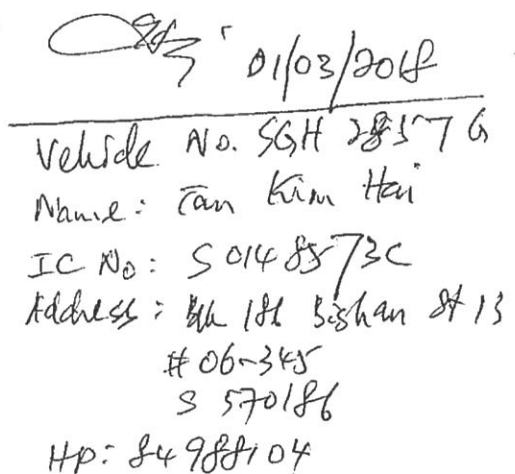 01/03/2018
Vehicle No. SGH 2857 G
Name: Tan Kim Hai
IC No: S 0148573C
Address: Blk 186 Bishan St 13
# 06-345
S 570186
Hp: 84988104